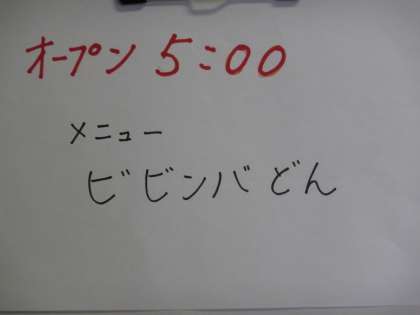 オープン 5:00
メニュー
ビビンバどん